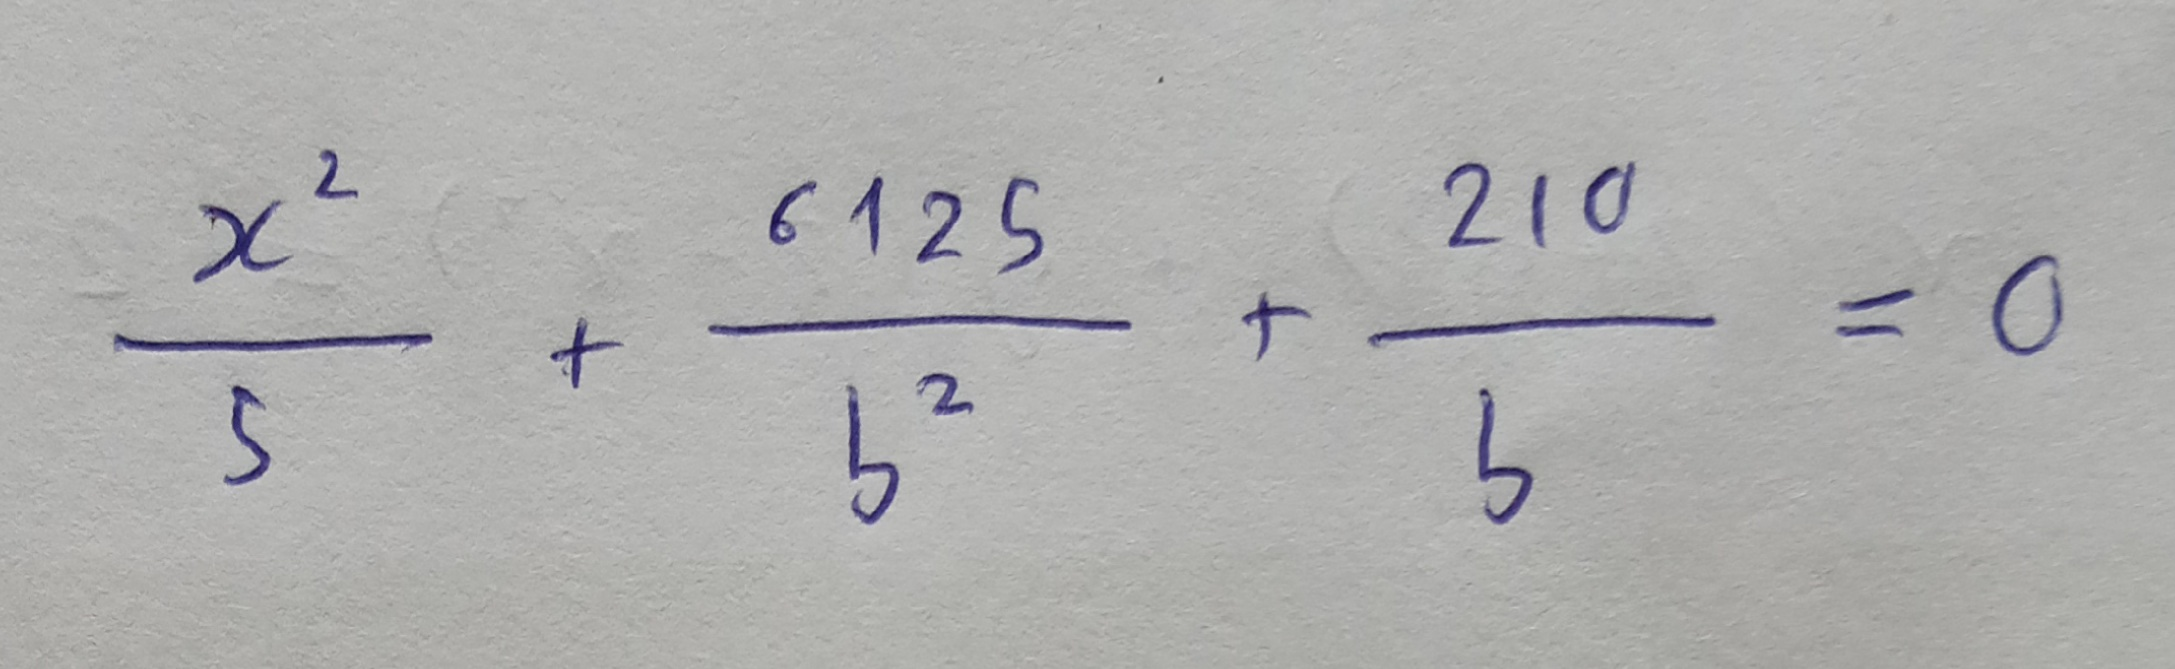 x²/5 + 6125/b² + 210/b = 0